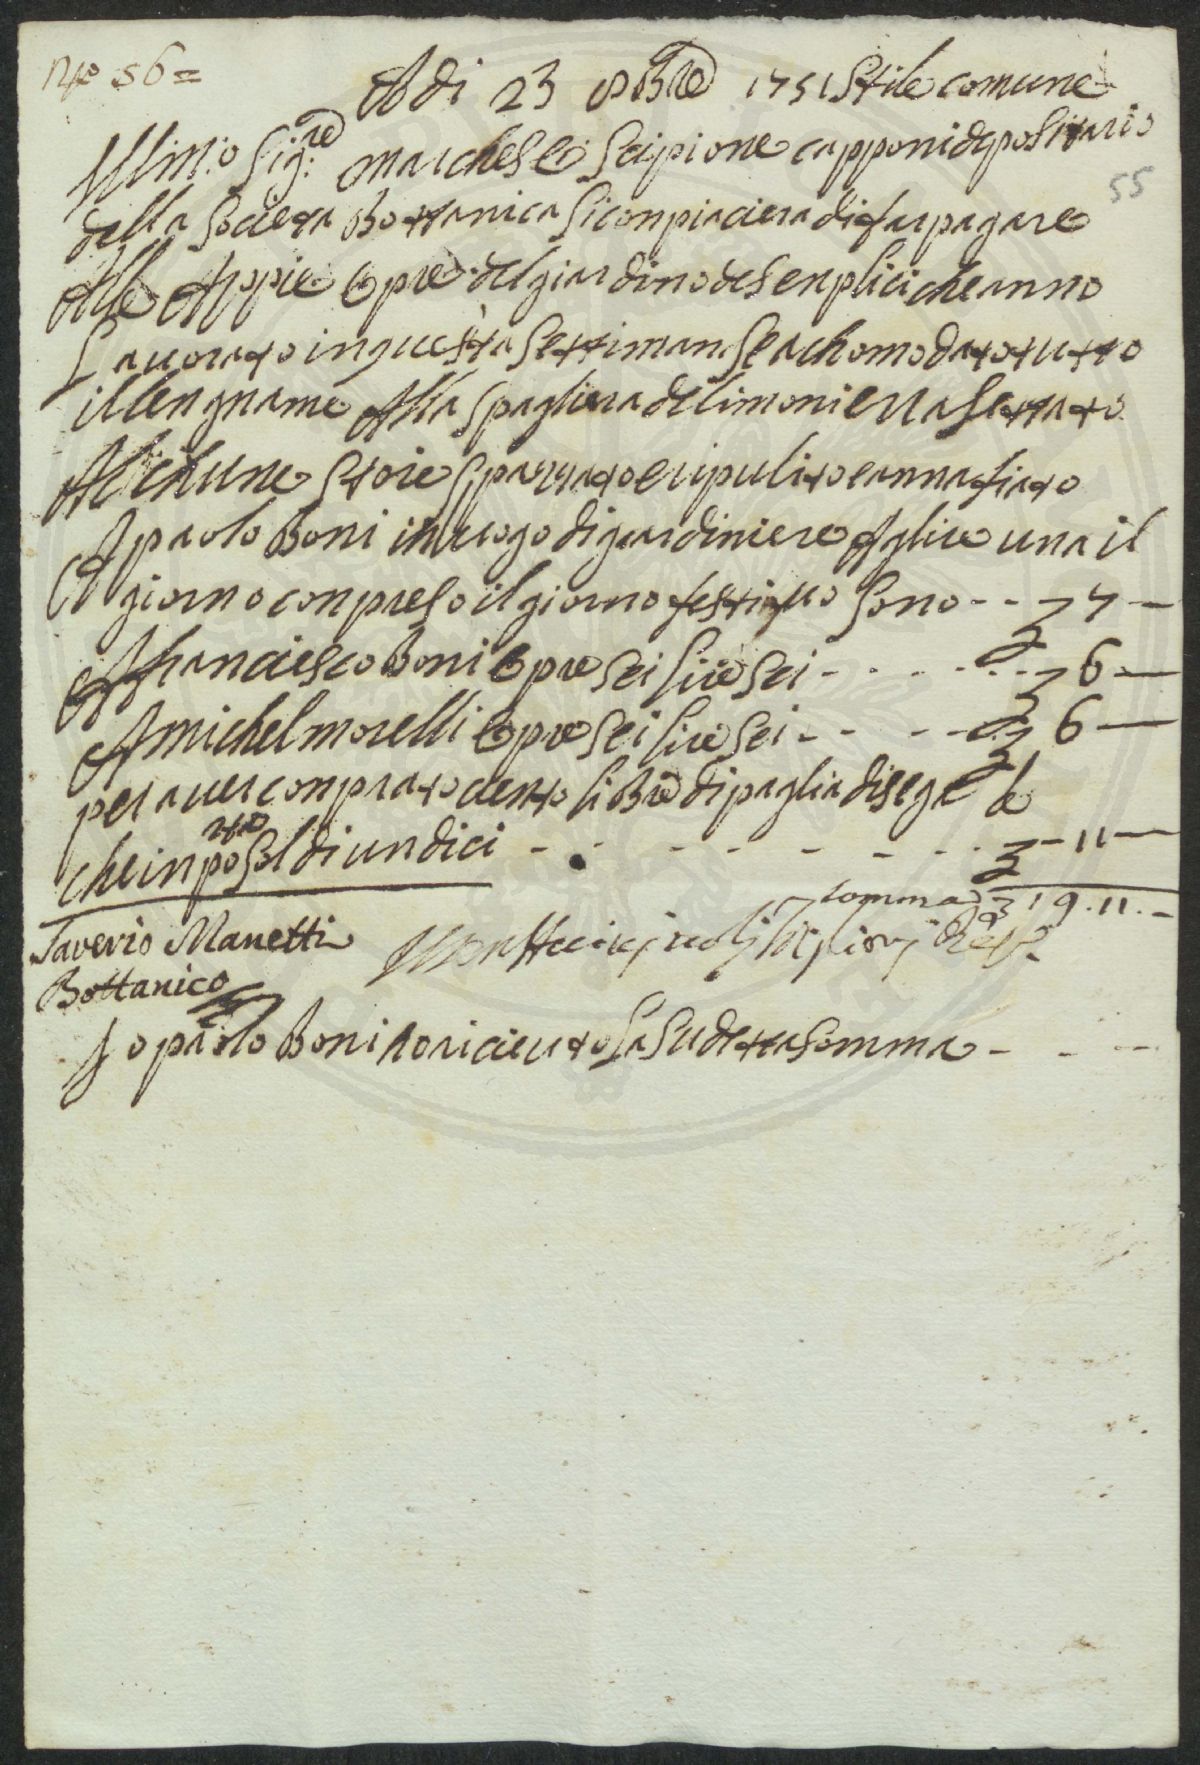 Nº 56=
Adi 23 8bre 1751 Stile comune
Illmo Sig:re Marchese Scipione capponi depositario
55
della Societa Bottanica Si conpiaciera di far pagare
Alle Apopie Opre del giardino de Senplici che anno
Lavorato in questa Settiman Se achomodato tutto
il lengname Alla Spagliera de limoni e
Alchune Stoie Spazzato e ripulito e annafiato
A paolo Boni in luogo di giardiniere A lire una il
giorno conpreso il giorno festivo Sono - - £ 7 —
A franciesco Boni Opre Sei lire Sei - - - - - £ 6 —
A michel morelli Opre Sei lire Sei - - - - £ 6 —
per aver conprato cento libre di paglia di Segale
che inporta Soldi undici - - - - - - - £ - 11 —
Somma £ 19.11.-
Saverio Manetti
Bottanico
Io paolo Boni ho riceuto la Sudetta Somma - - -